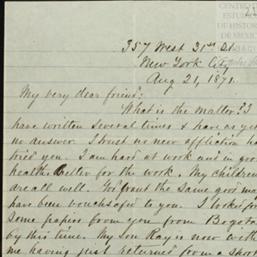 CENTRO
ESTUD
DE HISTOR
DE MEXIC
357 West 31st St.
New York City
Aug 21, 1871.
My very dear friend:
What is the matter? I
have written several times & have as yet
no answer. I trust no new affliction ha
tried you. I am hard at work and in goo
health better for the work. My children
are all well. You want the same good ma
have been vouchsafed to you. I looked for
some papers from you from Bogota
by this time. My son Ray is now with
me having just returned from a short